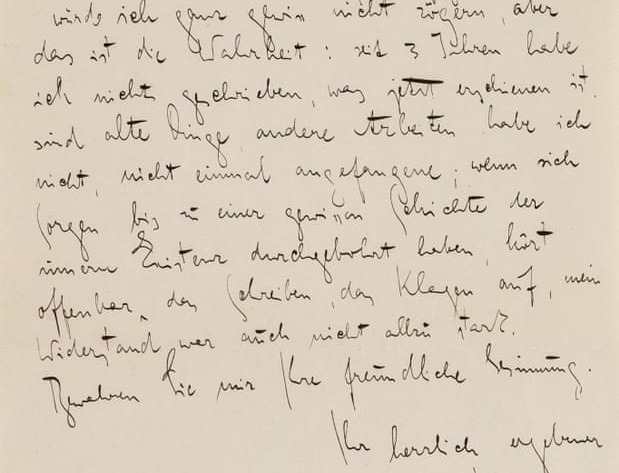 würde ich ganz gewiss nicht zögern, aber
das ist die Wahrheit: seit 3 Jahren habe
ich nichts geschrieben, was jetzt erschienen ist,
sind alte Dinge, andere Arbeiten habe ich
nicht, nicht einmal angefangene; wenn sich
Sorgen bis zu einer gewissen Schichte der
innern Existenz durchgebohrt haben, hört
offenbar das Schreiben, das Klagen auf, mein
Widerstand war auch nicht allzu stark.
Bewahren Sie mir Ihre freundliche Gesinnung.
Ihr herzlich ergebener